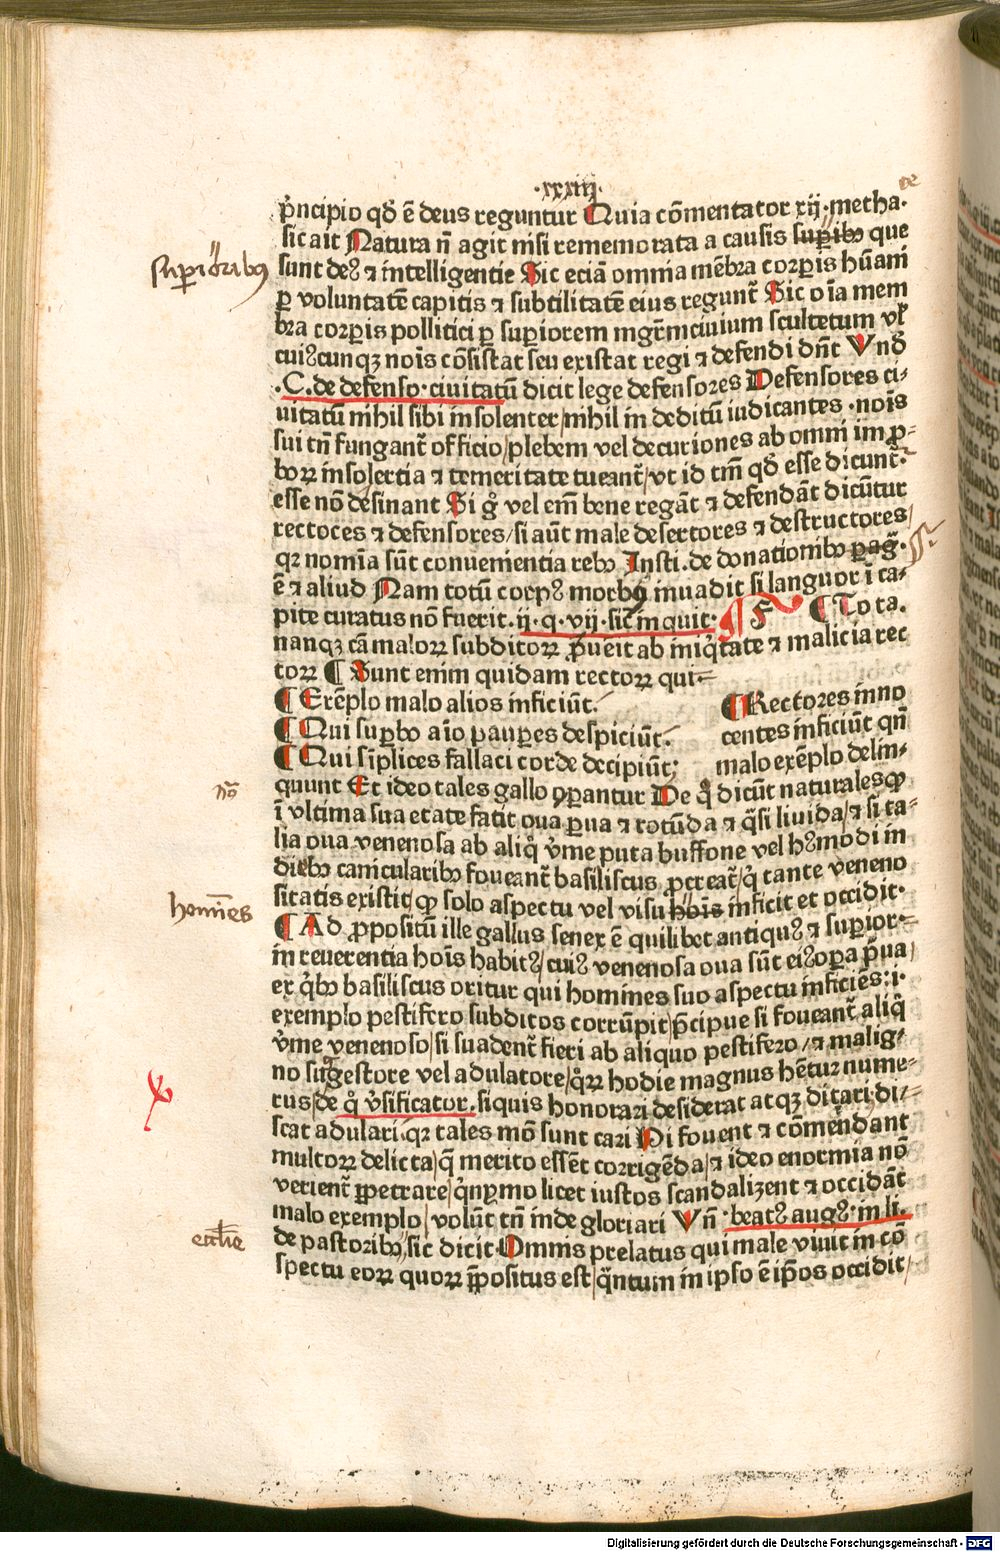 ·xxxiij·
de
p̃ncipio qđ ē deus reguntur Quia cōmentator xij·metha·
sic ait Natura nō agit nisi rememorata a causis supĩibꝰ que
suꝑioribus
sunt deꝰ ⁊ intelligentie Sic eciā omnia mēbra corꝑis hūani
ꝑ voluntatē capitis ⁊ subtilitatē eius regunt̃ Sic oīa mem
bra corꝑis pollitici ꝑ suꝑiorem mgr̃m ciuium scultetum vł
cuiꝰcunqꝫ nōis cōsistat seu existat regi ⁊ defendi dn̄t Vnđ
·C.de defenso·ciuitatū dicit lege defensores Defensores ci⸗
uitatū nihil sibi insolenter/nihil indeditū iudicantes ·nōis
sui tn̄ fungant̃ officio/plebem vel decuriones ab omni impꝛo⸗
boꝝ insolertia ⁊ temeritate tueant̃/vt id tm̄ qđ esse dicunt̃·
esse nō desinant Si g̊ vel em̄ bene regāt ⁊ defendāt dicūtur
rectoces ⁊ defensores/si aūt male desertores ⁊ destructores/
qꝛ nomīa sūt conuenientia rebꝰ Insti.de donationibꝰ pag̃·
ſſ.
ē ⁊ aliud Nam totū corpꝰ morbꝰ inuadit si languor ī ca⸗
pite curatus nō fuerit.ij·q·vij·sic̄ inquit: ¶ F ¶ Tota.
nanqꝫ cā maloꝝ subditoꝝ ꝓueīt ab iniq̃tate ⁊ malicia rec
toꝝ ¶ Sunt enim quidam rectoꝝ qui⸗
¶ Exēplo malo alios inficiūt. ¶ Rectores inno
¶ Qui suꝑbo aīo pauꝑes despiciūt. centes inficiūt qn̄
¶ Qui sīplices fallaci corde decipiūt; malo exēplo delin⸗
nō
quunt Et ideo tales gallo ꝯꝑantur De q̊ dicūt naturales ꝙ
ī vltima sua etate facit oua ꝑua ⁊ rotūda ⁊ q̃si liuida/⁊ si ta⸗
lia oua venenosa ab aliq̊ v̓me puta buffone vel hꝰmodi in
diebꝰ canicularibꝰ foueant̃ basiliscus ꝓcreat̃/q̇ tante veneno
sitatis existit/ꝙ solo aspectu vel visu hōis inficit et occidit·
homīes
¶ Ad ꝓpositū ille gallus senex ē quilibet antiquꝰ ⁊ suꝑior⸗
in reuerentia hōis habitꝰ/cuiꝰ venenosa oua sūt eiꝰ oꝑa p̃ua/
ex q̇bꝰ basiliscus oritur qui homines suo aspectu inficiēs:i·
exemplo pestifero subditos corrūpit/p̃cipue si foueant̃ aliq̊
v̓me venenoso/si suadent̃ fieri ab aliquo pestifero/⁊ malig⸗
no sugestore vel adulatore/q̊ꝝ hodie magnus hētur nume⸗
rus/de q̊ v̓sificator.siquis honorari desiderat atqꝫ ditari;di⸗
scat adulari.qꝛ tales mō sunt cari Hi fouent ⁊ cōmendant
multoꝝ delicta/q̄ merito essēt corrigēda/⁊ ideo enormia nō
verient̃ ꝑpetrare/q̇nymo licet iustos scandalizent ⁊ occidāt
malo exemplo/volūt tn̄ inde gloriari Vn̄ ·beatꝰ augꝰ·in li.
ecclesie
de pastoribꝰ/sic dicit Omnis prelatus qui male viuit in cō
spectu eoꝝ quoꝝ p̄positus est/q̃ntum in ipso ē ip̄os occidit/
Digitalisierung gefördert durch die Deutsche Forschungsgemeinschaft - DFG